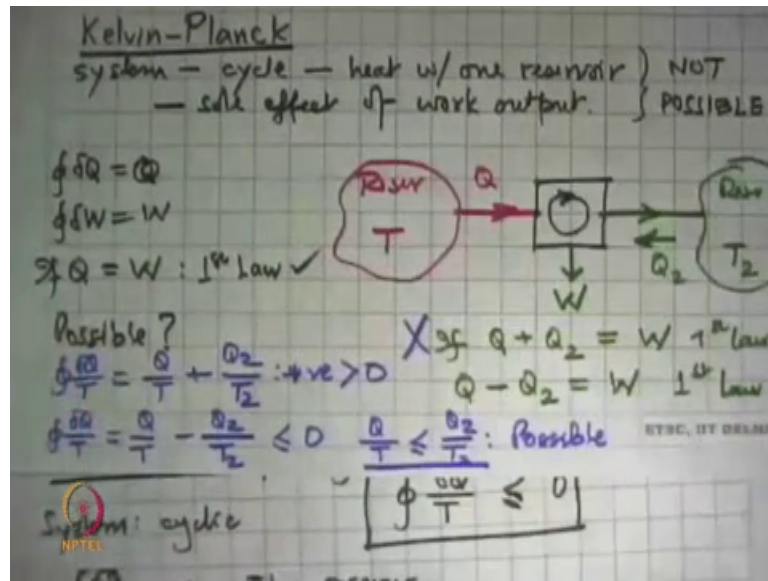 Kelvin-Planck
system - cycle - heat w/ one reservoir } NOT
- sole effect of work output. } POSSIBLE
∮δQ = Q
∮δW = W
If Q = W : 1st Law ✓
Reser
T
Q
W
Reser
T2
Q2
Possible?
X If Q + Q2 = W 1st Law
Q - Q2 = W 1st Law
∮δQ/T = Q/T + Q2/T2 : +ve > 0
∮δQ/T = Q/T - Q2/T2 ≤ 0 Q/T ≤ Q2/T2 : Possible
ETSC, IIT DELHI
∮ δQ/T ≤ 0
System: cyclic
NPTEL